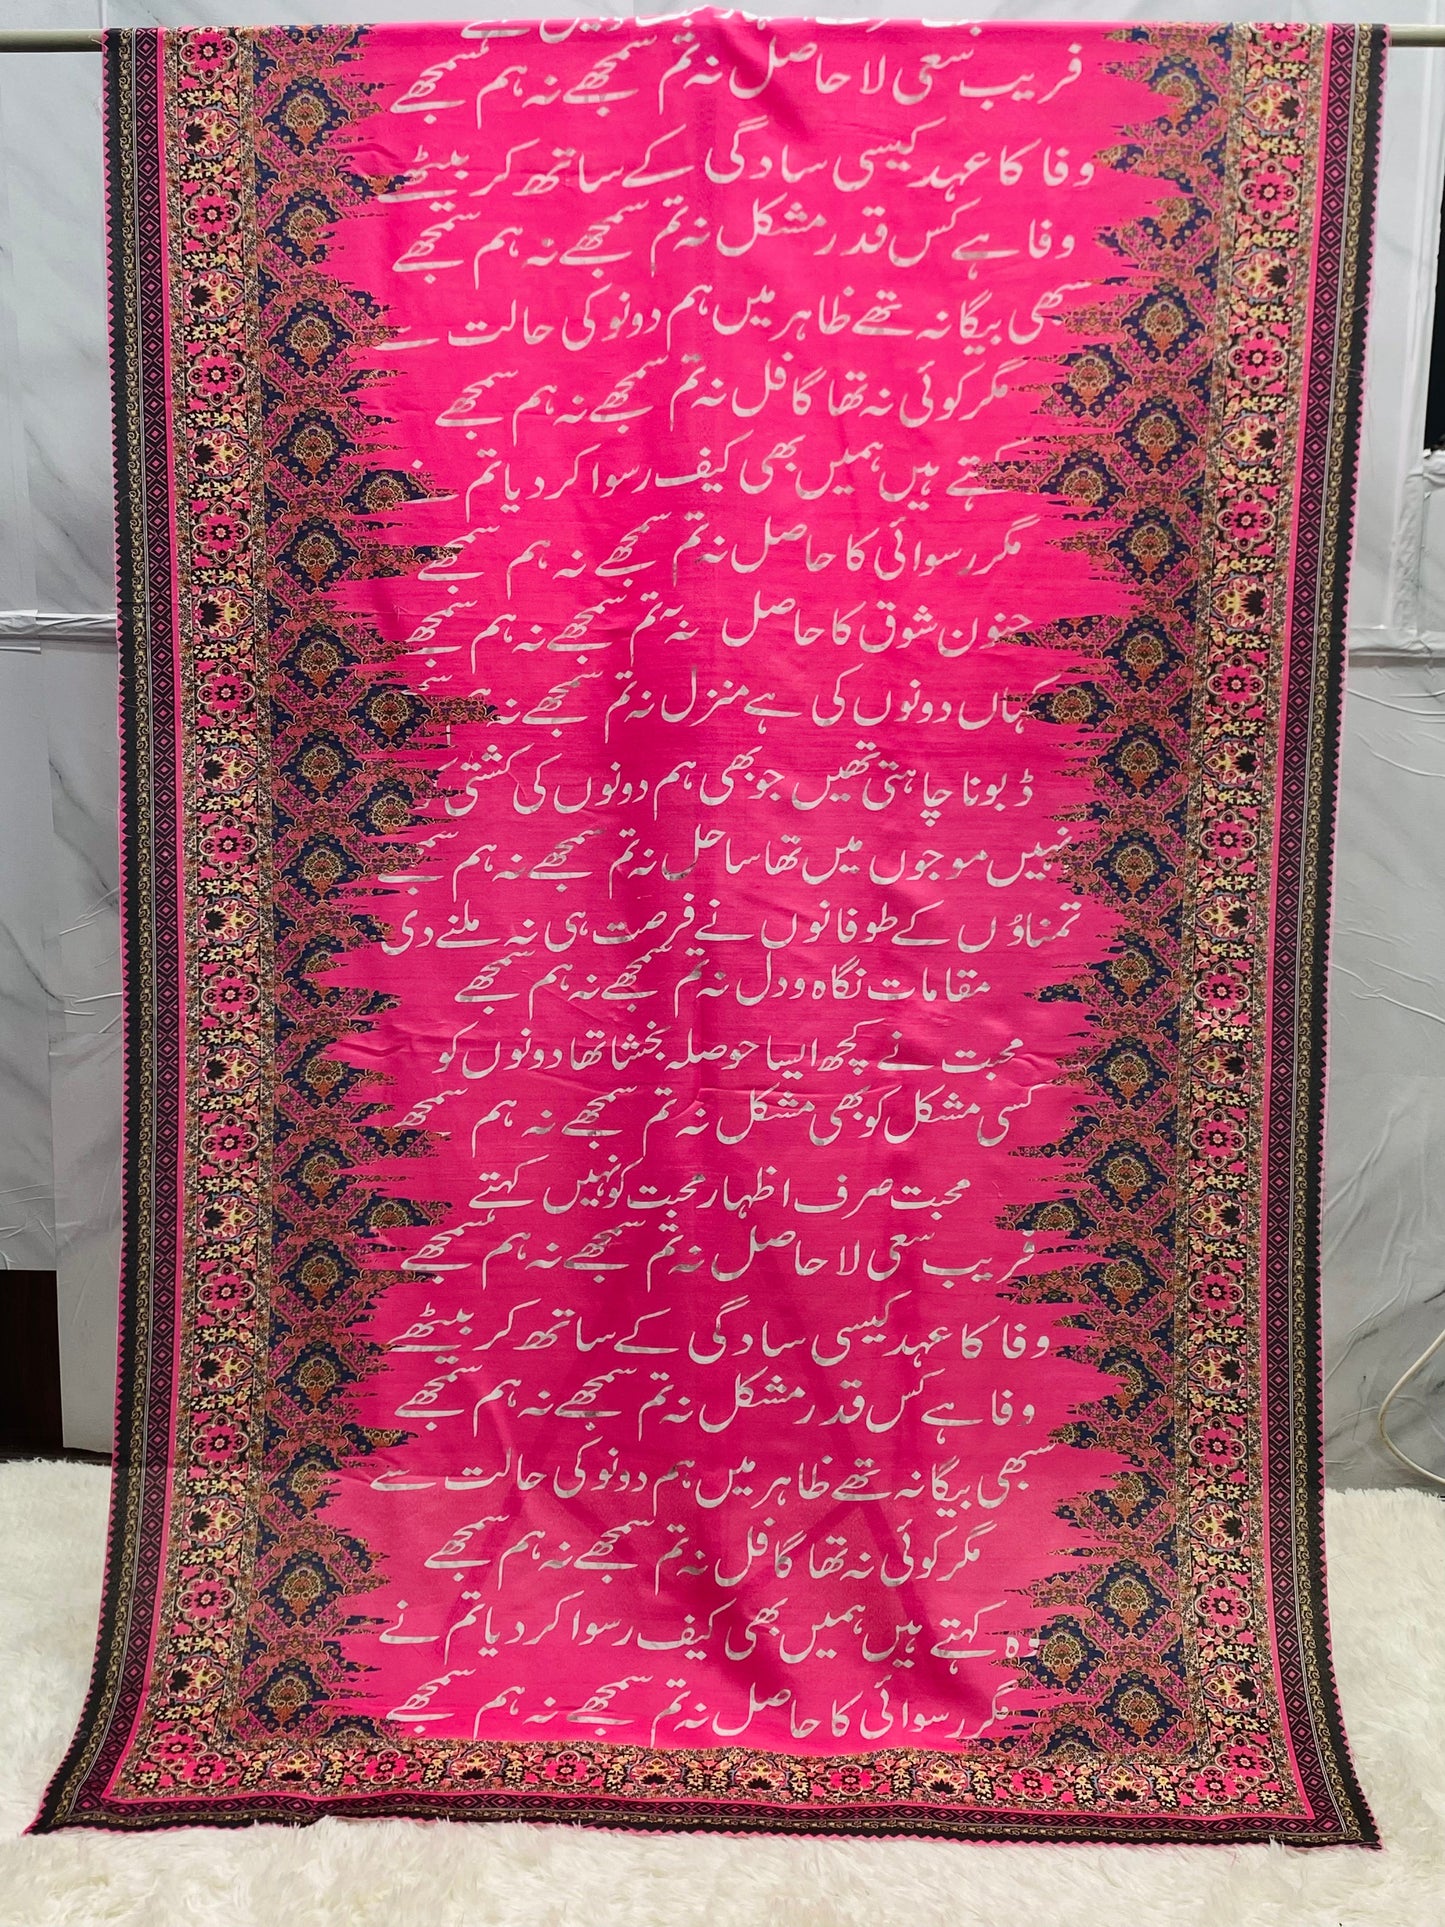 فریب سعی لا حاصل نہ تم سمجھے نہ ہم سمجھے
وفا کا عہد کیسی سادگی کے ساتھ کر بیٹھے
وفا ہے کس قدر مشکل نہ تم سمجھے نہ ہم سمجھے
سبھی بیگانہ تھے ظاہر میں ہم دونو کی حالت سے
مگر کوئی نہ تھا گافل نہ تم سمجھے نہ ہم سمجھے
کہتے ہیں ہمیں بھی کیف رسوا کر دیا تم نے
مگر رسوائی کا حاصل نہ تم سمجھے نہ ہم سمجھے
جنون شوق کا حاصل نہ تم سمجھے نہ ہم سمجھے
کہاں دونوں کی ہے منزل نہ تم سمجھے نہ
ڈبونا چاہتی تھیں جو بھی ہم دونوں کی کشتی
نہیں موجوں میں تھا ساحل نہ تم سمجھے نہ ہم
تمناؤں کے طوفانوں نے فرصت ہی نہ ملنے دی
مقامات نگاہ و دل نہ تم سمجھے نہ ہم سمجھے
محبت نے کچھ ایسا حوصلہ بخشا تھا دونوں کو
کسی مشکل کو بھی مشکل نہ تم سمجھے نہ ہم سمجھ
محبت صرف اظہار محبت کو نہیں کہتے
فریب سعی لا حاصل نہ تم سمجھے نہ ہم سمجھے
وفا کا عہد کیسی سادگی کے ساتھ کر بیٹھے
وفا ہے کس قدر مشکل نہ تم سمجھے نہ ہم سمجھے
سبھی بیگانہ تھے ظاہر میں ہم دونو کی حالت سے
مگر کوئی نہ تھا گافل نہ تم سمجھے نہ ہم سمجھے
وہ کہتے ہیں ہمیں بھی کیف رسوا کر دیا تم نے
مگر رسوائی کا حاصل نہ تم سمجھے نہ ہم سمجھے